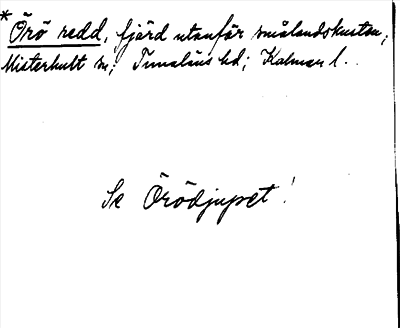 * Örö redd, fjärd utanför smålandskusten;
Misterhult sn; Tunaläns hd; Kalmar l.
Se Örödjupet!